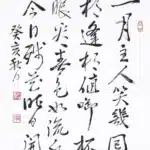 一月主人笑幾回
相逢相值啣杯
眼看春色水流
今日殘花昨日開
癸亥秋